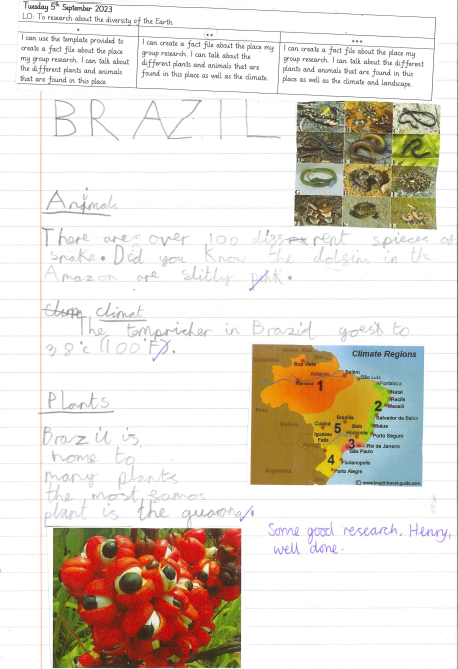 Tuesday 5th September 2023
LO: To research about the diversity of the Earth
*
I can use the template provided to
create a fact file about the place
my group research. I can talk about
the different plants and animals
that are found in this place.
**
I can create a fact file about the place my
group research. I can talk about the
different plants and animals that are
found in this place as well as the climate.
***
I can create a fact file about the place my
group research. I can talk about the different
plants and animals that are found in this
place as well as the climate and landscape.
BRAZIL
Animals
There are over 100 diffrent spiecs of
snake. Did you know the dolsins in the
Amazon are slitly pink.
climat
The tmpricher in Brazil goest to
38°c (100°F).
Climate Regions
Boa Vista
Amazon
Manaus
Belém
São Luis
Fortaleza
Natal
Recife
Maceió
Salvador da Bahia
Ilhéus
Porto Seguro
Brasília
Cuiabá
Belo
Horizonte
Iguassu
Falls
Rio de Janeiro
São Paulo
Florianopolis
Porto Alegre
Colombia
Peru
Bolivia
Argentina
1
2
3
4
5
© www.brazil-travel-guide.com
Plants
Brazil is
home to
many plants
the most famos
plant is the guarana.
Some good research, Henry,
well done.